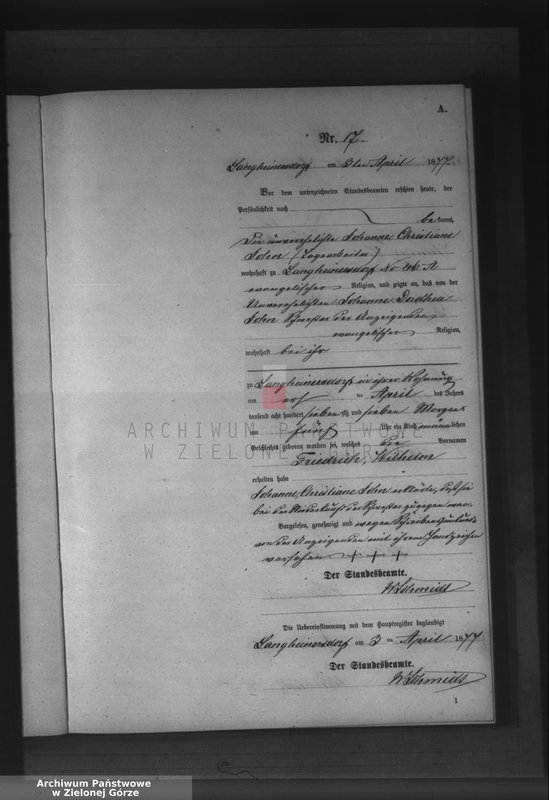 A.
Nr. 17.
Langheinersdorf am 3ten April 1877.
Vor dem unterzeichneten Standesbeamten erschien heute, der
Persönlichkeit nach
bekannt,
Die unverehelichte Johanne Christiane
John (Tagearbeiter)
wohnhaft zu Langheinersdorf No A
evangelischer Religion, und zeigte an, daß von der
Unverehelichten Johanne Dorothea
John Schwester der Anzeigenden
evangelischer Religion,
wohnhaft bei ihr
zu Langheinersdorf in ihrer Wohnung
am ersten April des Jahres
tausend acht hundert siebenzig und sieben Morgens
um fünf Uhr ein Kind männlichen
Geschlechts geboren worden sei, welches die Vornamen
Friedrich, Wilhelm
erhalten habe
Johanne, Christiane John erklärte, daß sie
bei der Niederkunft der Schwester zugegen war.
Vorgelesen, genehmigt und wegen Schreibensunkunde
von der Anzeigenden mit ihrem Handzeichen
versehen + + +
Der Standesbeamte.
W Schmidt
Die Uebereinstimmung mit dem Hauptregister beglaubigt
Langheinersdorf am 3 ten April 1877
Der Standesbeamte.
W Schmidt
1
ARCHIWUM PAŃSTWOWE
W ZIELONEJ GÓRZE
Archiwum Państwowe
w Zielonej Górze